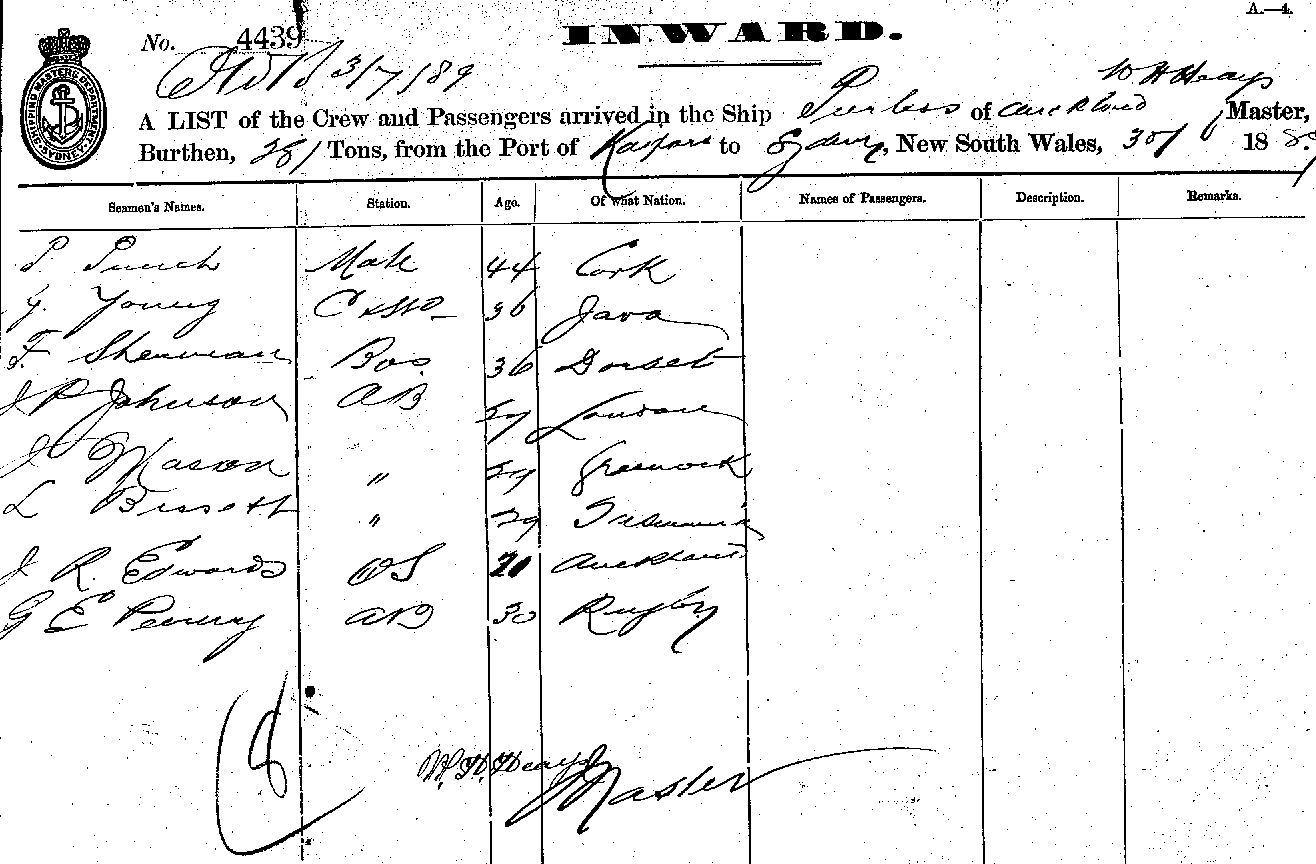 A.—4.
No. 4439
INWARD.
3/7/89
W H Heays
A LIST of the Crew and Passengers arrived in the Ship Peerless of Auckland Master,
Burthen, 281 Tons, from the Port of Kaipara to Sydney, New South Wales, 30/6 1889
SHIPPING MASTERS DEPARTMENT SYDNEY
Seamen's Names. Station. Age. Of what Nation. Names of Passengers. Description. Remarks.
P. Punch Mate 44 Cork
Young 36 Java
F. Sherman Bos. 36 Dorset
J P Johnson AB London
J Mason " Greenock
L Bissett " 29 Tasmania
J. R. Edwards OS 20 Auckland
G E Penny AB 30 Rugby
8
W. H. Heays
Master